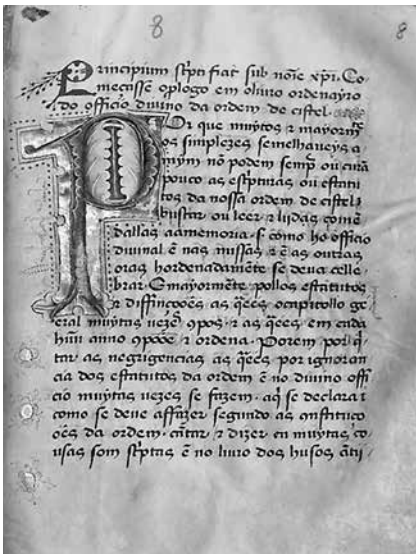 8
8
Principium sc̄pti fiat sub noīe xp̄i. Co
meçasse o p̄logo em o liuro ordenayro
do officio diuino da ordem de cistel.
POr que muytos ⁊ mayormē
os simplezes semelhaueys a
mym nō podem semp̄ ou curā
pouco as esc̄pturas ou estatu
tos da nossa ordem de cistel
buscar ou leer ⁊ lijdas comē
dallas aa memoria. s. como ho officio
diuinal ē nas missas ⁊ ē as outras
oras hordenadamēte se deua celle
brar. E mayormēte pollos estatutos
⁊ diffinçoões as q̄ees o capitollo ge
eral muytas uezes ꝯpos. ⁊ as q̄ees em cada
huū anno ꝯpoōe ⁊ ordena. Porem por q̄
tar as negligencias as q̄ees por ignoran
cia dos estatutos da ordem ē no diuino offi
cio muytas uezes se fazem. aq̄ se declara
como se deue affazer segundo as ꝯstituço
oēs da ordem. cātar ⁊ dizer ca muytas co
usas som sc̄ptas ē no liuro dos husos āti